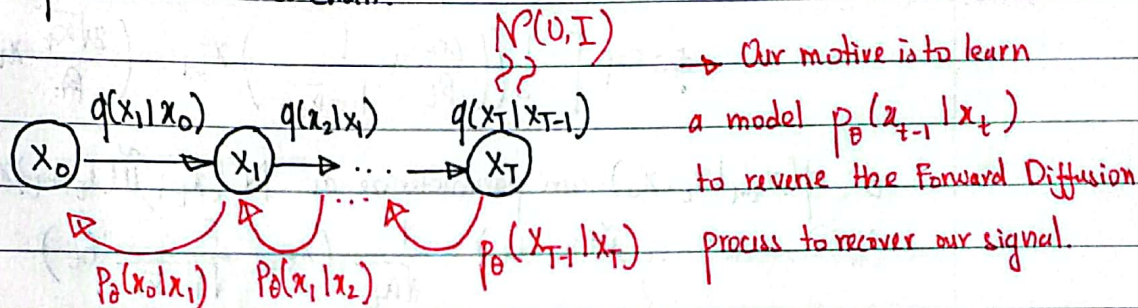 N(0,I)
q(x₁|x₀) q(x₂|x₁) q(x_T|x_{T-1})
x₀ x₁ ... x_T
...
p_θ(x₀|x₁) p_θ(x₁|x₂) p_θ(x_{T-1}|x_T)
→ Our motive is to learn
a model p_θ(x_{t-1}|x_t)
to reverse the Forward Diffusion
process to recover our signal.